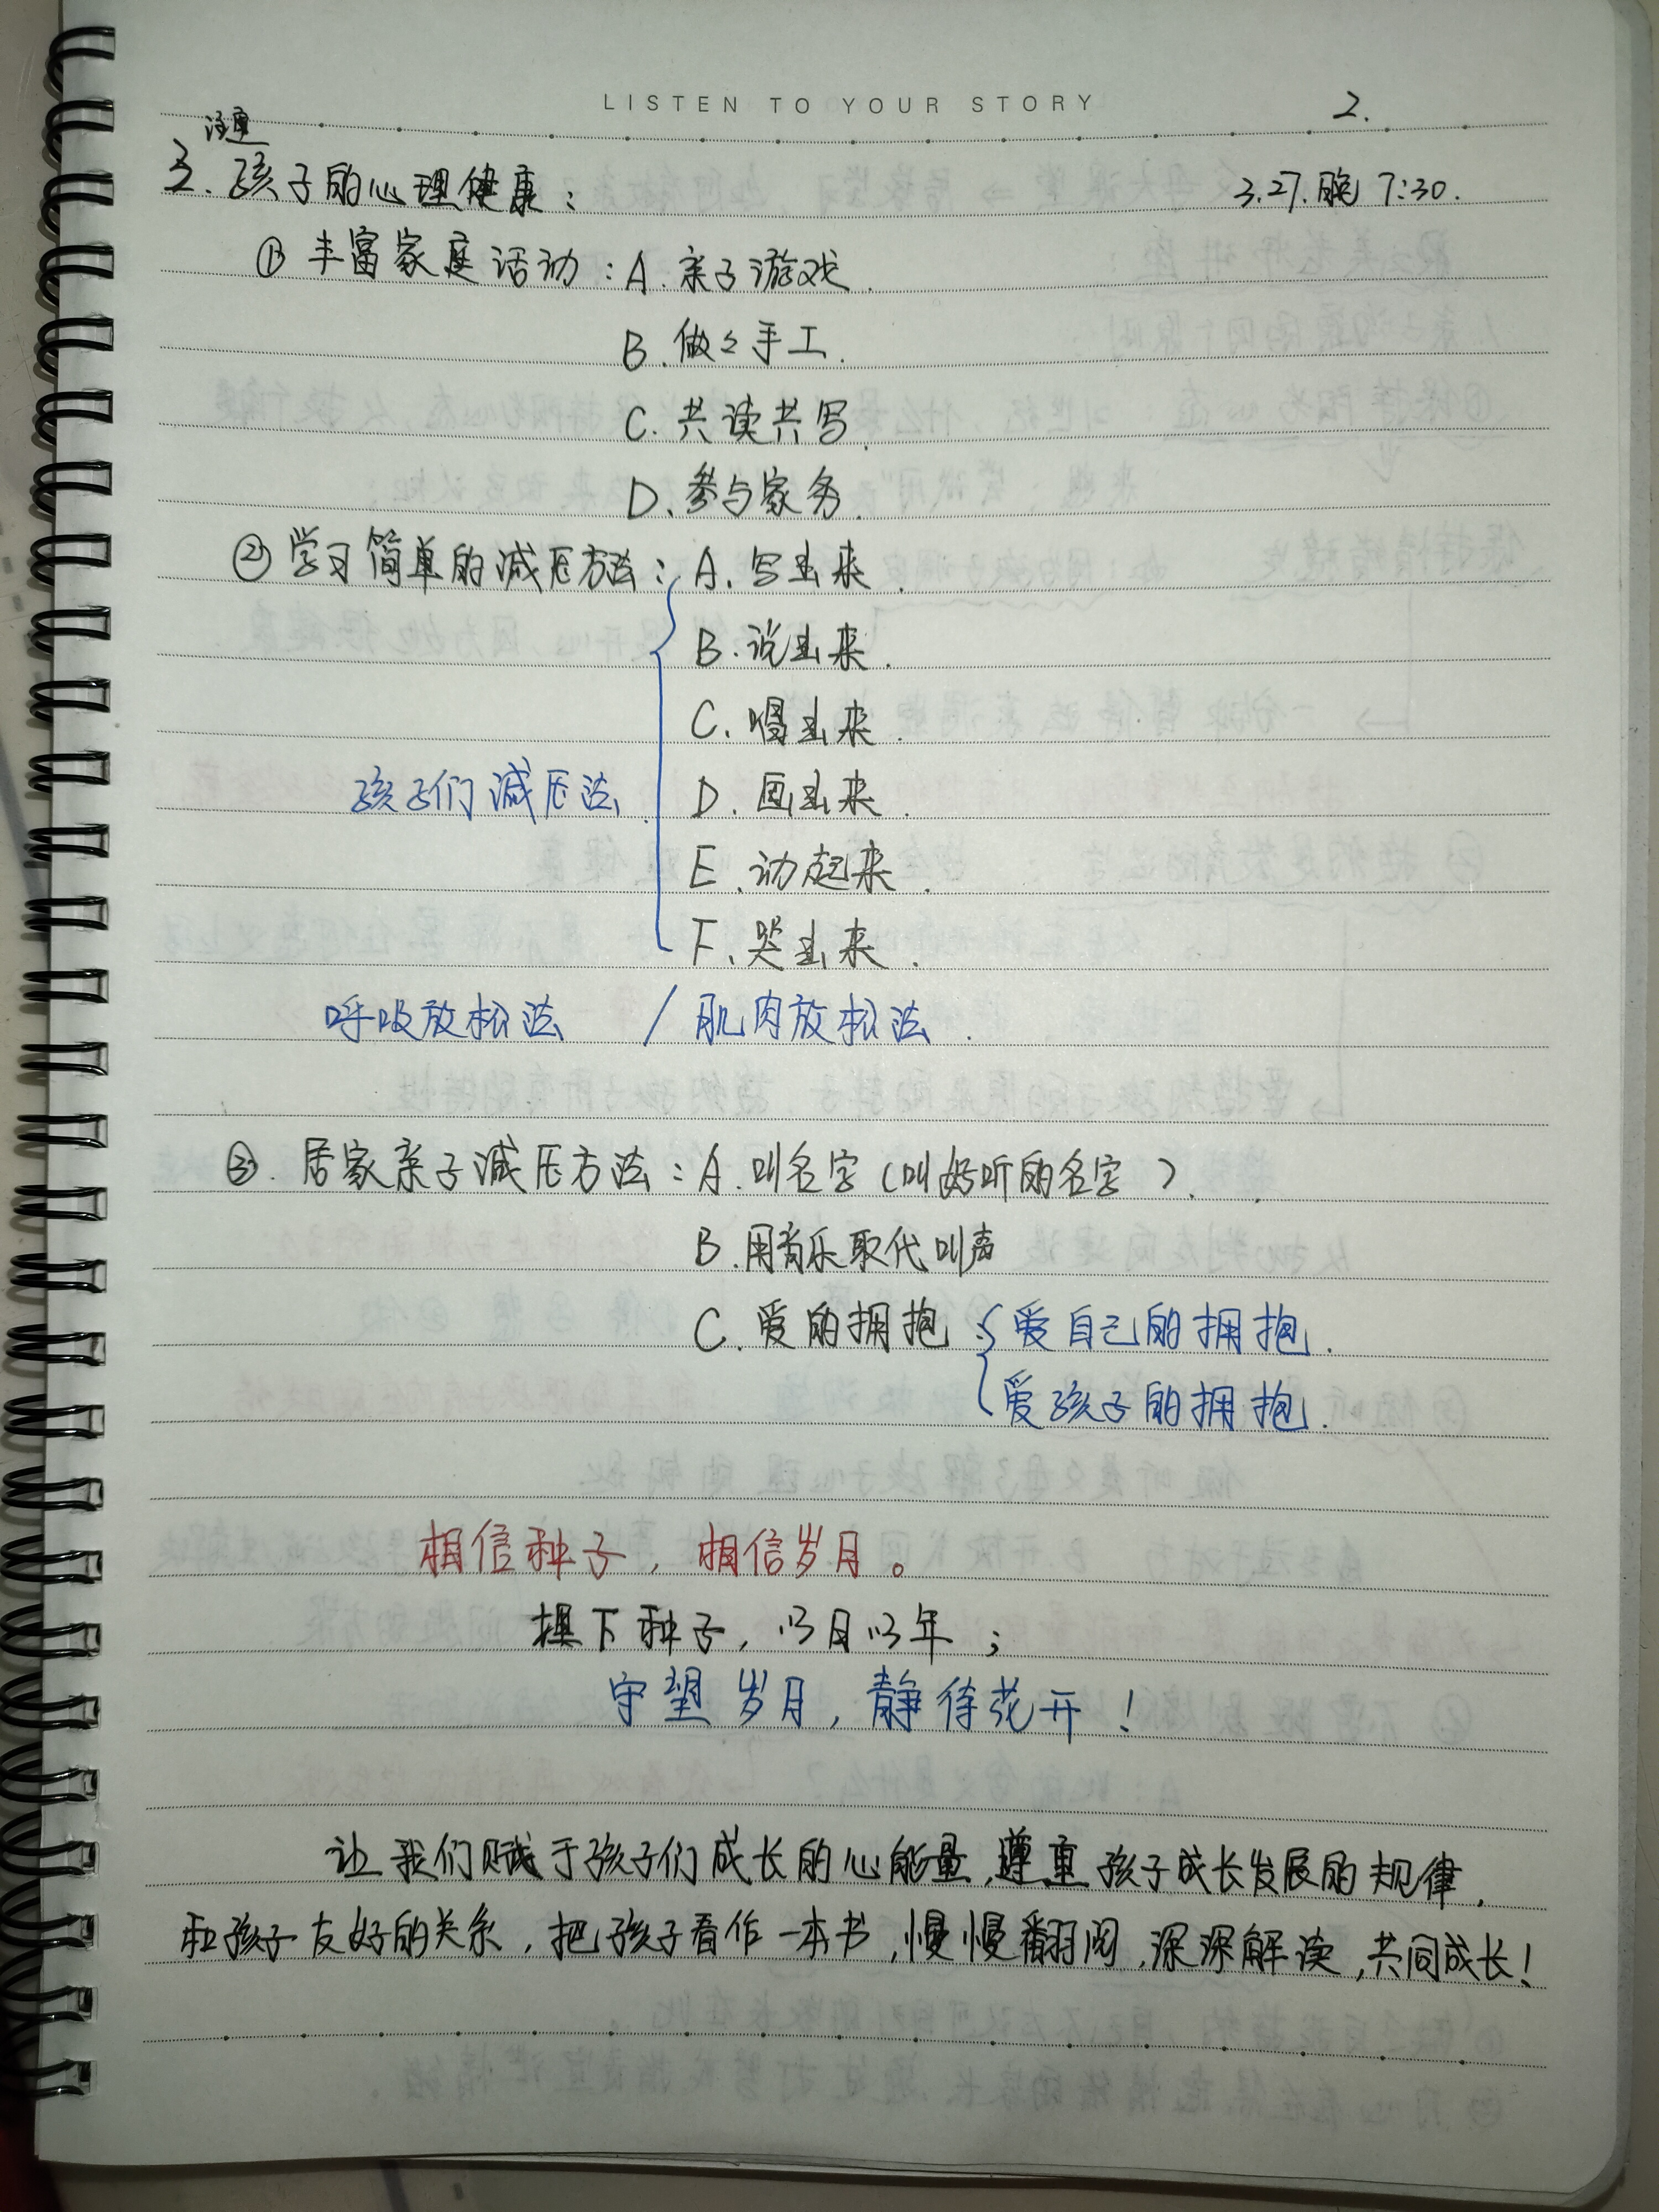 LISTEN TO YOUR STORY
2.
注重
3. 孩子的心理健康：
3.27. 晚 7:30.
① 丰富家庭活动：A. 亲子游戏.
B. 做々手工.
C. 共读共写.
D、参与家务.
② 学习简单的减压方法：A. 写出来.
B. 说出来.
C. 唱出来.
D. 画出来.
E、动起来.
F、哭出来.
孩子们减压法.
呼吸放松法 / 肌肉放松法.
③. 居家亲子减压方法：A. 叫名字（叫好听的名字）.
B. 用音乐取代叫声
C. 爱的拥抱：爱自己的拥抱.
爱孩子的拥抱.
相信种子，相信岁月。
埋下种子，以月以年；
守望岁月，静待花开！
让我们赋于孩子们成长的心能量，遵重孩子成长发展的规律，
和孩子友好的关系，把孩子看作一本书，慢慢翻阅，深深解读，共同成长！